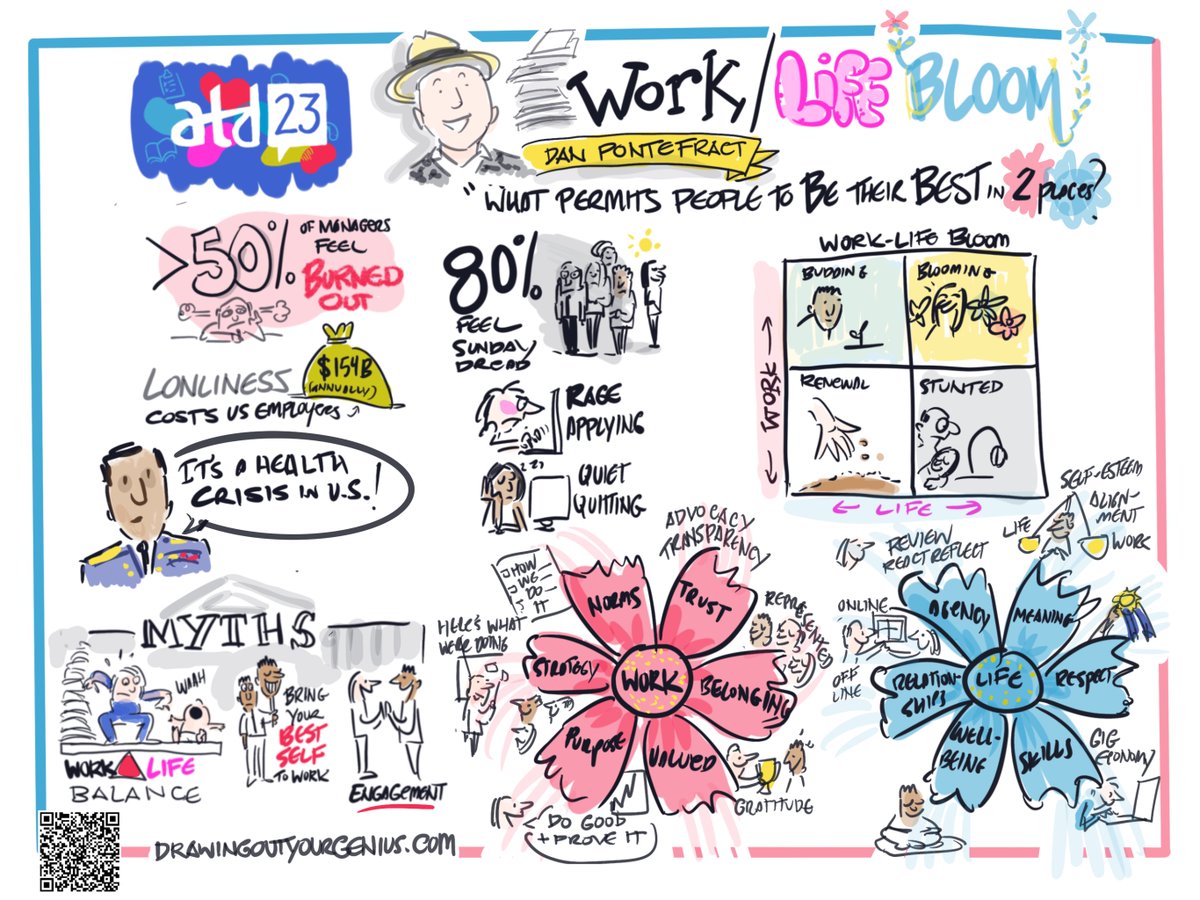 atd 23
Work/Life Bloom
Dan Pontefract
"What permits people to Be their BEST in 2 places?
>50%
of managers
feel
BURNED
OUT
LONLINESS
$154B
(annually)
COSTS US EMPLOYERS
IT'S A HEALTH
CRISIS IN U.S.!
80%
FEEL
SUNDAY
DREAD
RAGE
APPLYING
QUIET
QUITTING
WORK-LIFE BLOOM
BUDDING
BLOOMING
RENEWAL
STUNTED
WORK
LIFE
MYTHS
WAAH
WORK LIFE
BALANCE
BRING
YOUR
BEST
SELF
TO WORK
ENGAGEMENT
ADVOCACY
TRANSPARENCY
HOW
WE
DO
IT
HERE'S WHAT
WE'RE DOING
NORMS
TRUST
STRATEGY
WORK
BELONGING
PURPOSE
VALUED
REPRESENT
GRATITUDE
DO GOOD
+ PROVE IT
SELF-ESTEEM
ALIGN-
MENT
LIFE
WORK
REVIEW
REACT REFLECT
ONLINE
OFF
LINE
AGENCY
MEANING
RELATION-
SHIPS
LIFE
RESPECT
WELL-
BEING
SKILLS
GIG
ECONOMY
DRAWINGOUTYOURGENIUS.COM